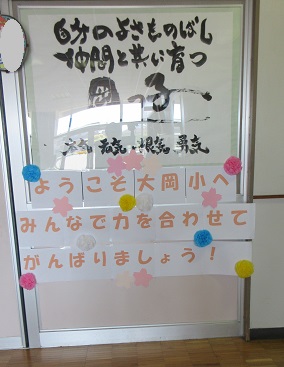 自分のよさをのばし
仲間と共に育つ
岡っ子
元気 本気 根気 勇気
ようこそ大岡小へ
みんなで力を合わせて
がんばりましょう！